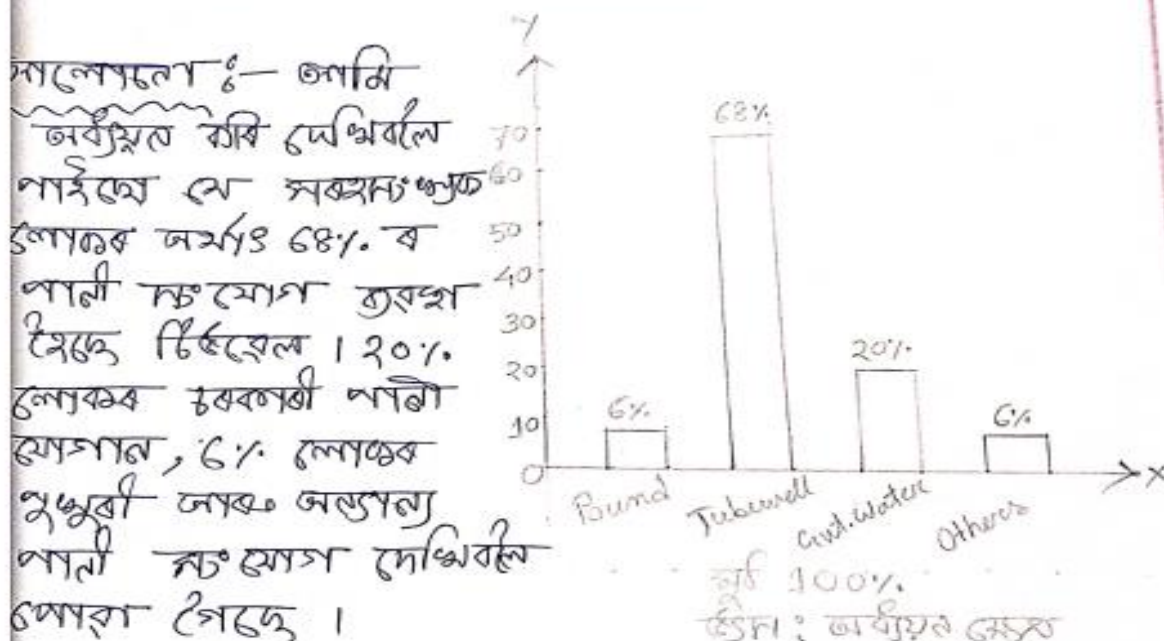 আলোচনা :— আমি
অধ্যয়ন কৰি দেখিবলৈ
পাইছো যে সৰহসংখ্যক
লোকৰ অৰ্থাৎ 68% ৰ
পানী সংযোগ ব্যৱস্থা
হৈছে টিউৱেল । 20%
লোকৰ চৰকাৰী পানী
যোগান, 6% লোকৰ
পুখুৰী আৰু অন্যান্য
পানী সংযোগ দেখিবলৈ
পোৱা গৈছে ।
Y
70
60
50
40
30
20
10
0
68%
20%
6%
6%
X
Pound
Tubewell
Govt. Water
Others
100%
উৎস : অধ্যয়ন